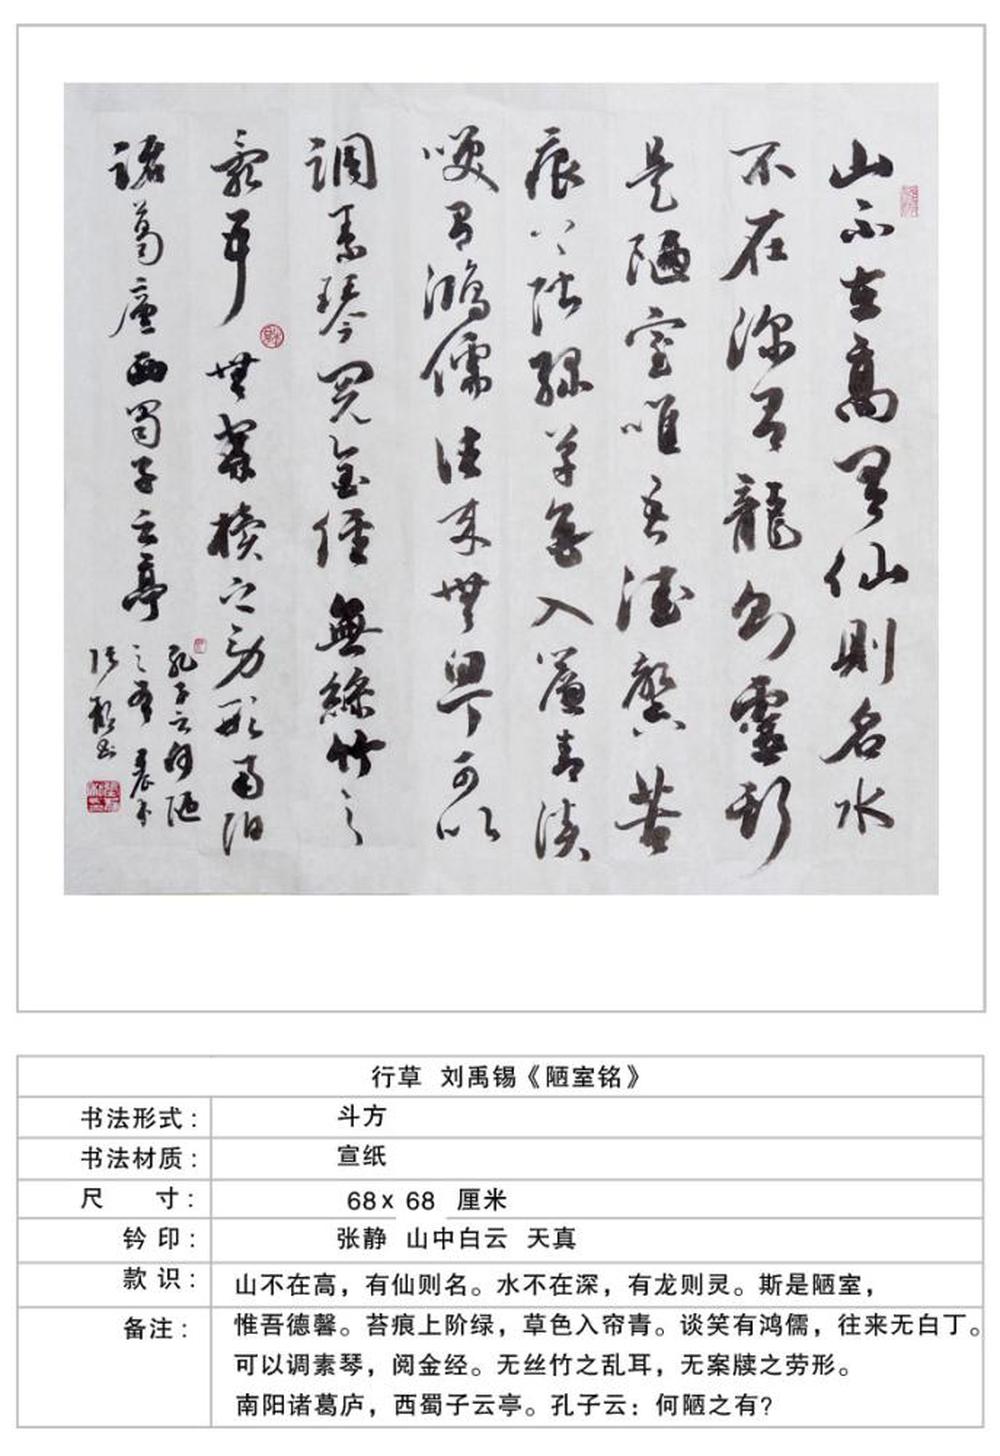 山不在高有仙則名水
不在深有龍則靈斯
是陋室唯吾德馨苔
痕上階綠草色入簾青談
笑有鴻儒往來無白丁可以
調素琴閱金經無絲竹之
亂耳無案牘之勞形南陽
諸葛廬西蜀子云亭
孔子云何陋
之有
张静书
行草 刘禹锡《陋室铭》
书法形式: 斗方
书法材质: 宣纸
尺 寸: 68x 68 厘米
钤 印: 张静 山中白云 天真
款 识: 山不在高，有仙则名。水不在深，有龙则灵。斯是陋室，
备注: 惟吾德馨。苔痕上阶绿，草色入帘青。谈笑有鸿儒，往来无白丁。
可以调素琴，阅金经。无丝竹之乱耳，无案牍之劳形。
南阳诸葛庐，西蜀子云亭。孔子云：何陋之有？